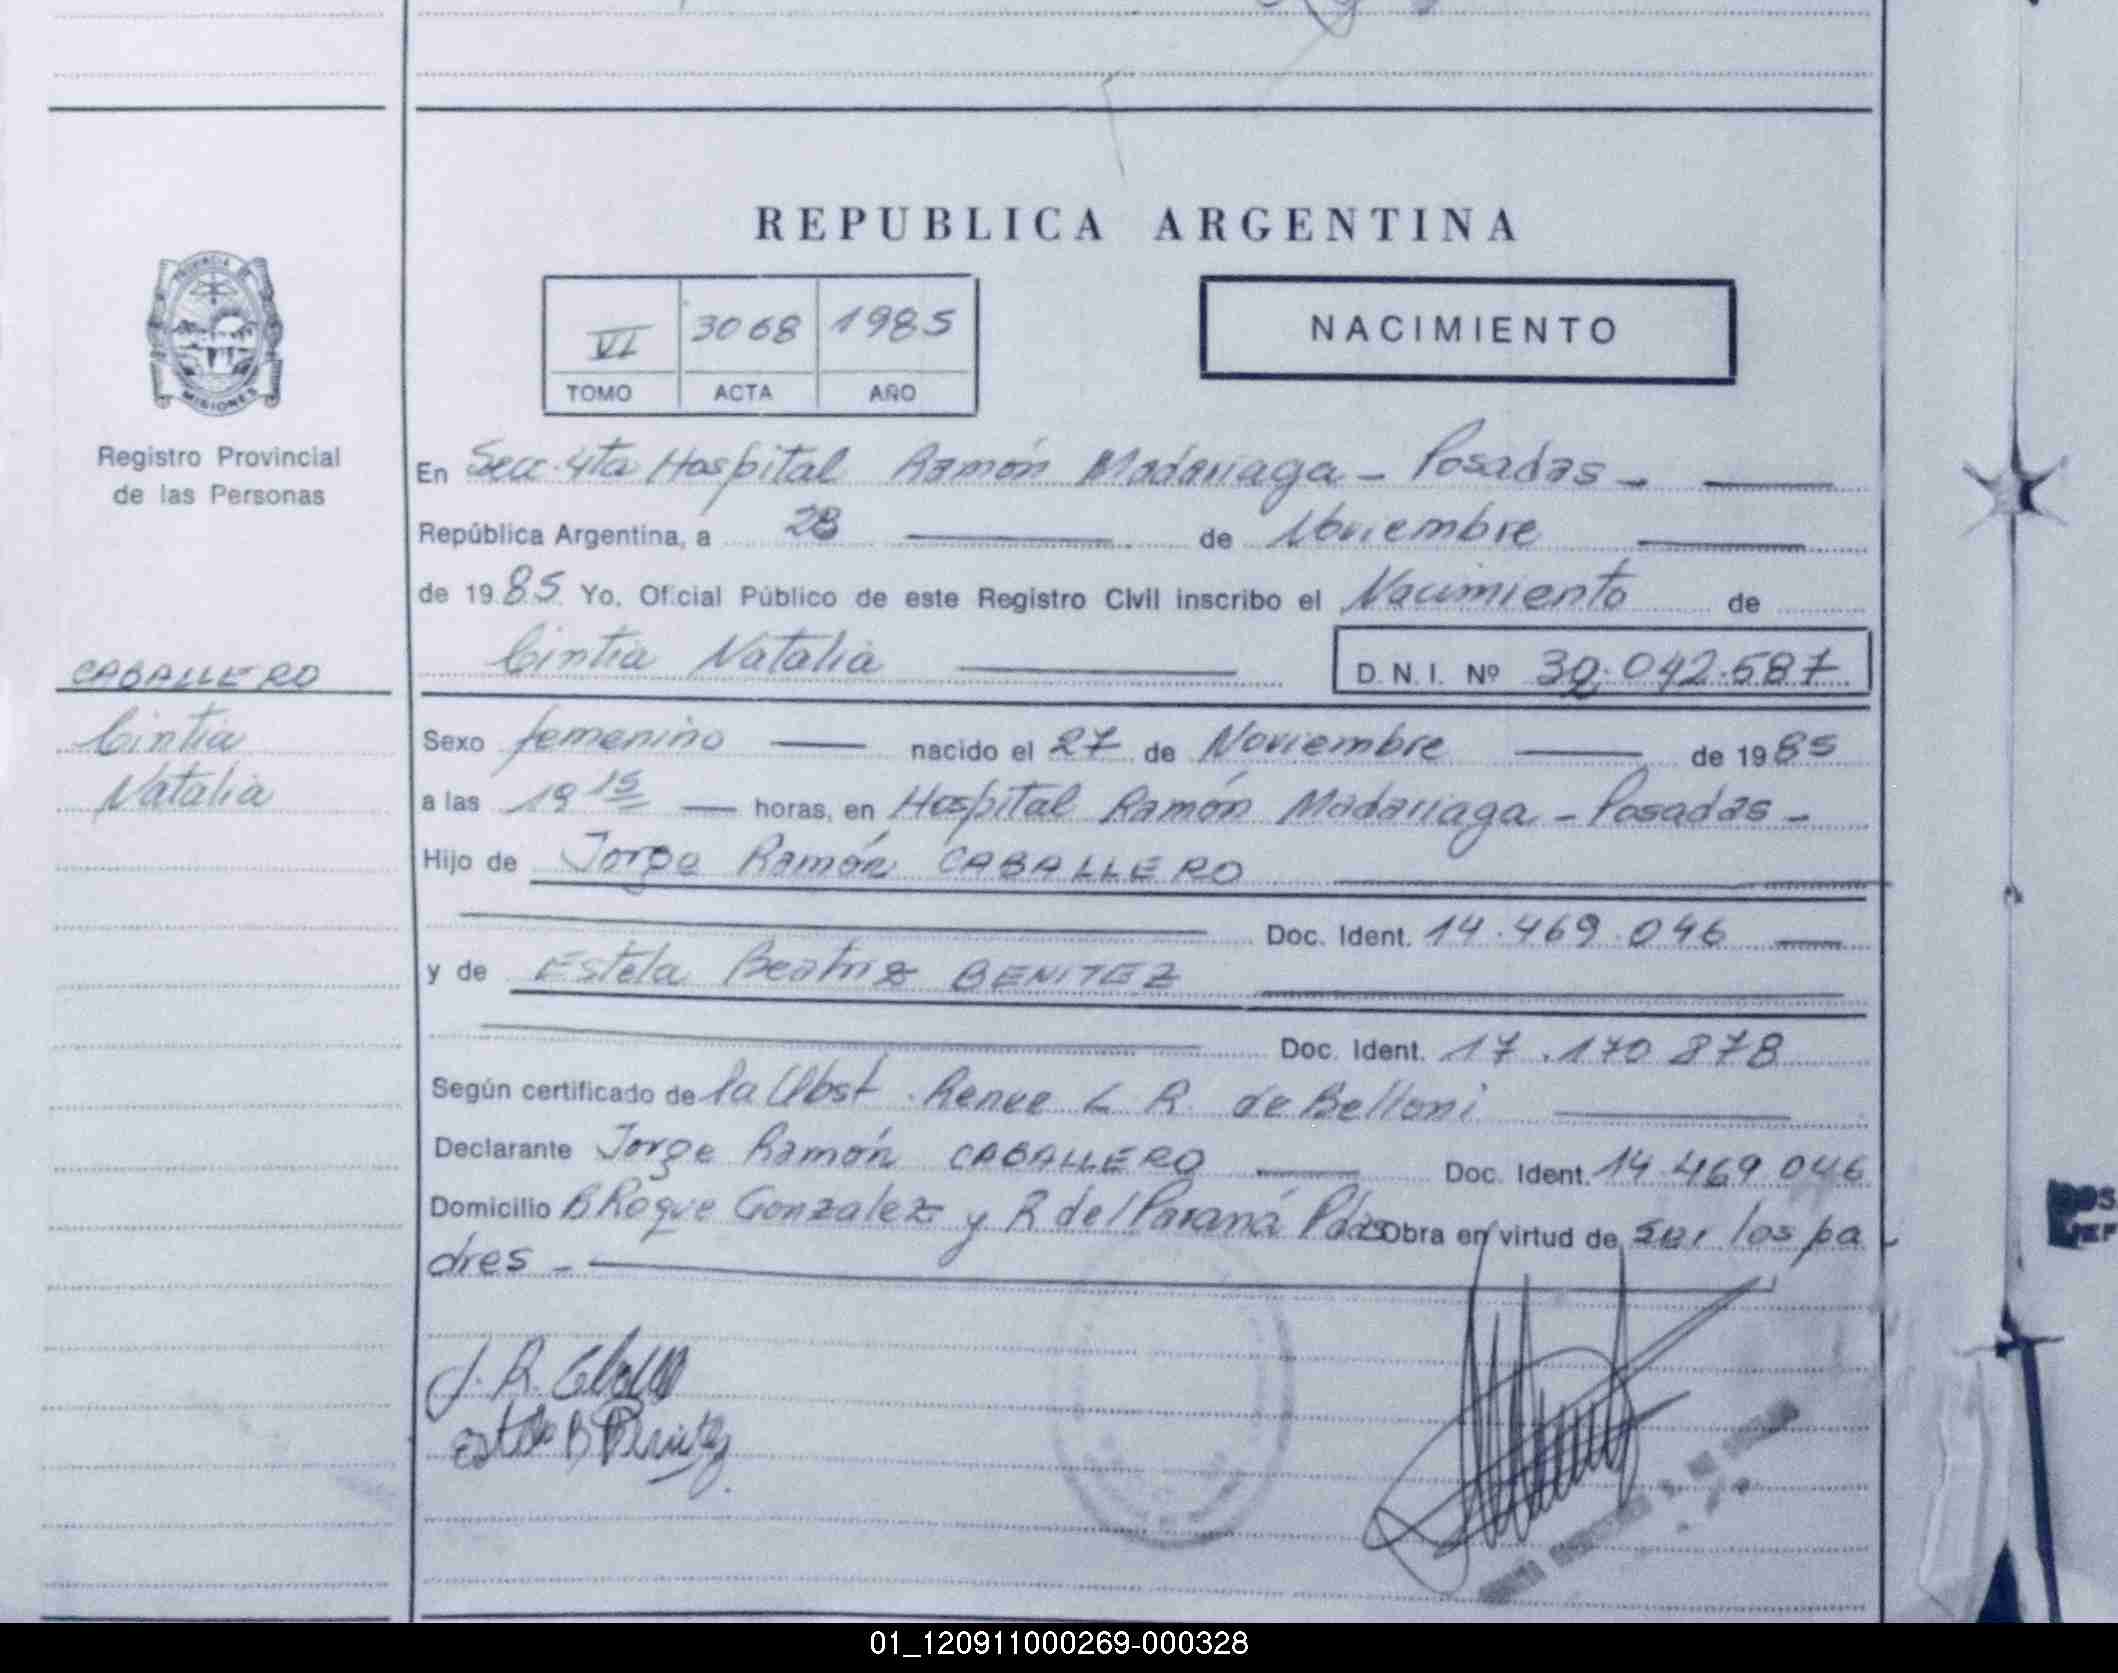 REPUBLICA ARGENTINA
PROVINCIA DE
MISIONES
Registro Provincial
de las Personas
VI 3068 1985
TOMO ACTA AÑO
NACIMIENTO
En Secc. 4ta Hospital Ramón Madariaga - Posadas -
República Argentina, a 28 de Noviembre
de 1985 Yo, Oficial Público de este Registro Civil inscribo el Nacimiento de
Cintia Natalia
D. N. I. Nº 32.042.587
CABALLERO
Cintia
Natalia
Sexo femenino nacido el 27 de Noviembre de 1985
a las 19 15 horas, en Hospital Ramón Madariaga - Posadas -
Hijo de Jorge Ramón CABALLERO
Doc. Ident. 14.469.046
y de Estela Beatriz BENITEZ
Doc. Ident. 17.170 878
Según certificado de la Obst. Renee L R. de Belloni
Declarante Jorge Ramón CABALLERO Doc. Ident. 14 469 046
Domicilio B Roque Gonzalez y R del Paraná Pdas Obra en virtud de ser los pa
dres -
J. R.
Estela B Benitez
01_120911000269-000328